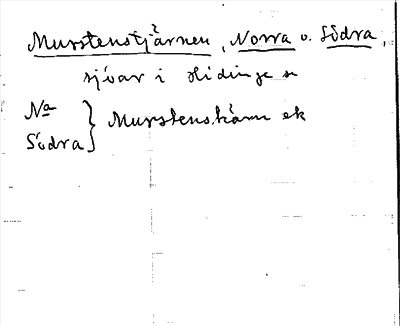 Murstenstjärnen, Norra o. Södra,
sjöar i Hidinge sn
Na } Murstenskärn ek
Södra